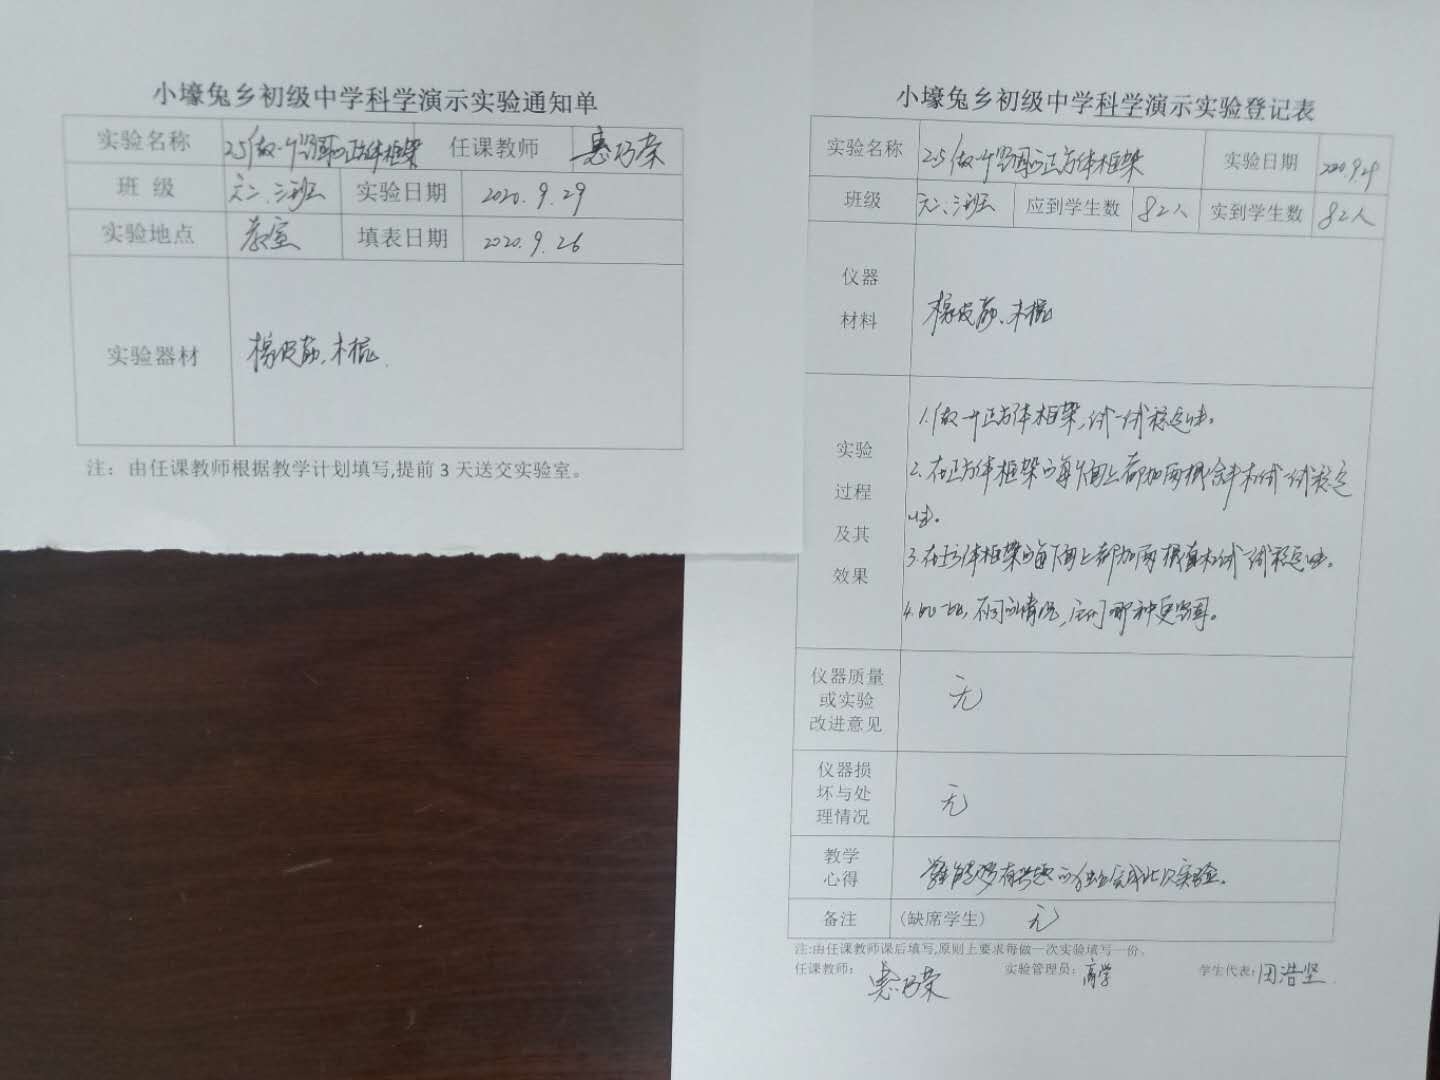 小壕兔乡初级中学科学演示实验通知单
实验名称 2.5做一个坚固的正方体框架 任课教师 惠巧荣
班 级 六二、三班 实验日期 2020.9.29
实验地点 教室 填表日期 2020.9.26
实验器材 橡皮筋、木棍
注：由任课教师根据教学计划填写,提前3天送交实验室。
小壕兔乡初级中学科学演示实验登记表
实验名称 2.5做一个坚固的正方体框架 实验日期 2020.9.29
班级 六二、三班 应到学生数 82人 实到学生数 82人
仪器
材料
橡皮筋、木棍
实验
过程
及其
效果
1.做一个正方体框架,试一试稳定性。
2.在正方体框架的每个面上都加两根斜木试一试稳定
性。
3.在正方体框架的每个面上都加两根直木试一试稳定性。
4.比一比,不同的情况,它们哪种更坚固。
仪器质量
或实验
改进意见
无
仪器损
坏与处
理情况
无
教学
心得
能够有兴趣的 完成此次实验。
备注 (缺席学生) 无
注:由任课教师课后填写,原则上要求每做一次实验填写一份。
任课教师: 惠巧荣 实验管理员: 高学 学生代表: 田浩坚